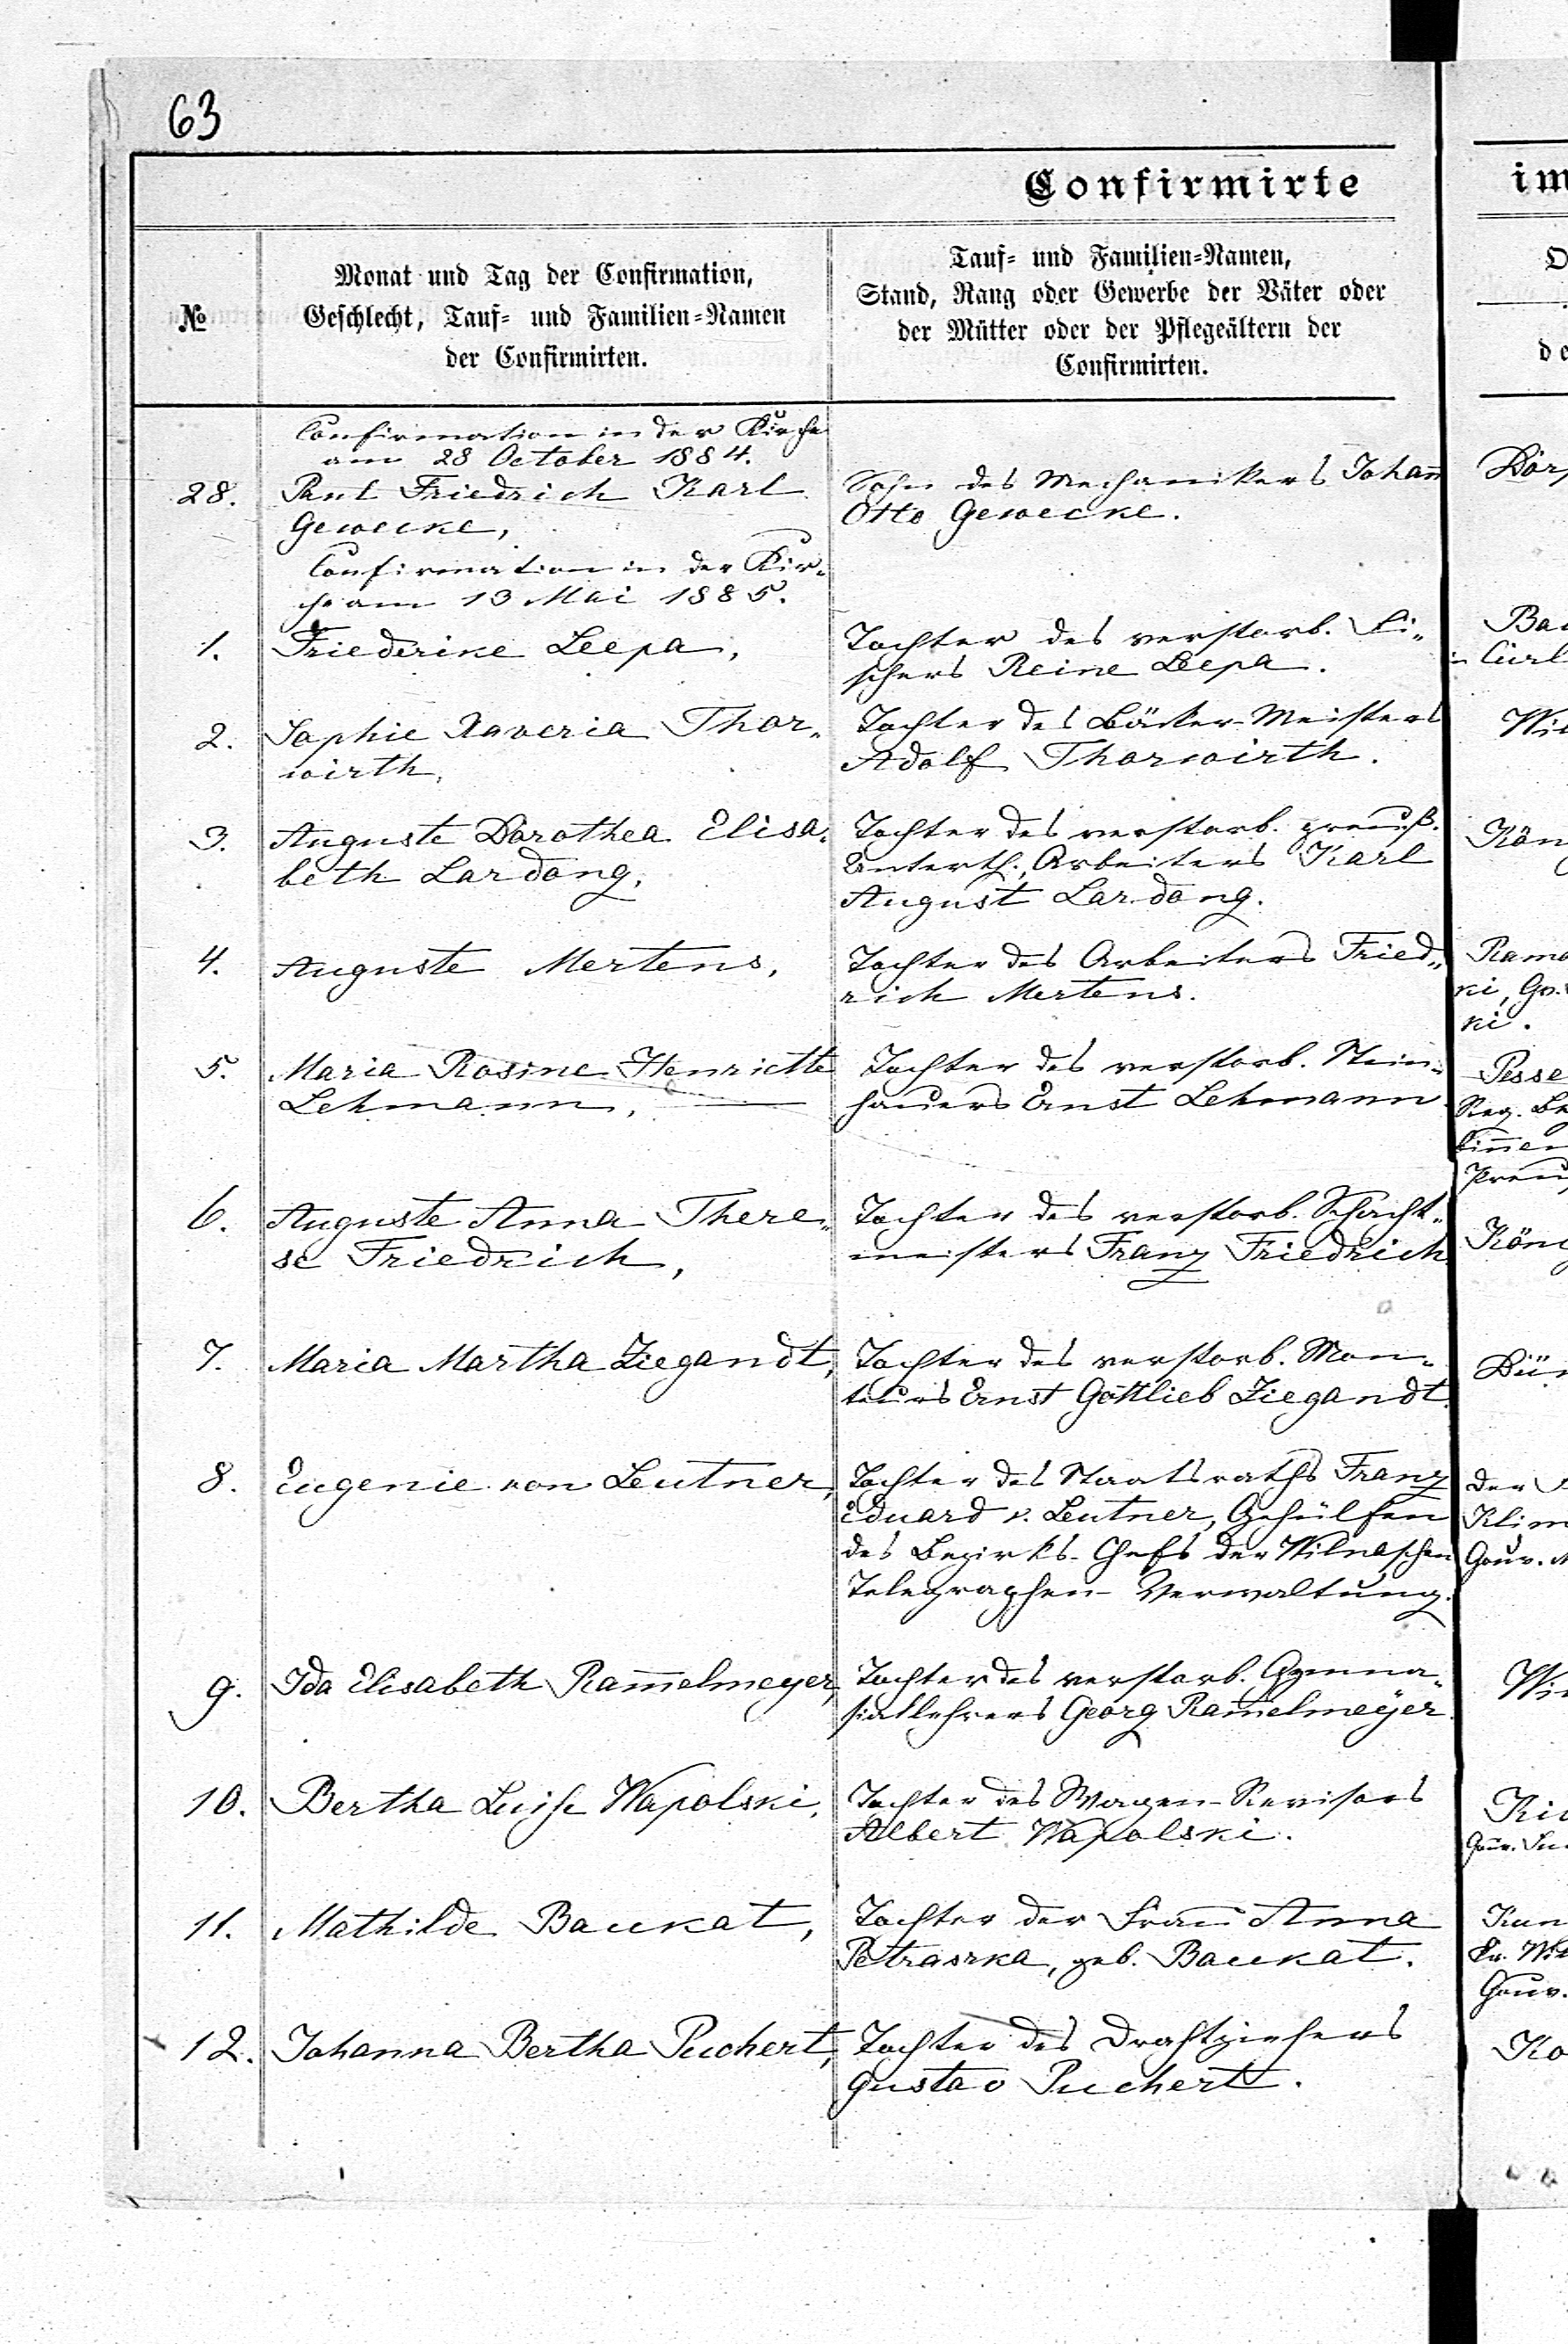 63
Confirmirte
im
№
Monat und Tag der Confirmation,
Geschlecht, Tauf- und Familien-Namen
der Confirmirten.
Tauf- und Familien-Namen,
Stand, Rang oder Gewerbe der Väter oder
der Mütter oder der Pflegeältern der
Confirmirten.
Confirmation in der Kirche
am 28 October 1884.
28. Paul Friedrich Karl
Gewecke,
Sohn des Mechanikers Johañ
Otto Gewecke.
Confirmation in der Kir-
che am 13 Mai 1885.
1. Friederike Leepa,
Tochter des verstorb. Fi-
schers Reine Leepa.
2. Sophie Xaveria Thor-
wirth,
Tochter des Bäcker-Meisters
Adolf Thorwirth.
3. Auguste Dorothea Elisa-
beth Lardong,
Tochter des verstorb. preuß.
Unterth., Arbeiters Karl
August Lardong.
4. Auguste Mertens,
Tochter des Arbeiters Fried-
rich Mertens.
5. Maria Rosine Henriette
Lehmann,
Tochter des verstorb. Stein-
hauers Ernst Lehmann.
6. Auguste Anna There-
se Friedrich,
Tochter des verstorb. Schacht-
meisters Franz Friedrich
7. Maria Martha Ziegandt,
Tochter des verstorb. Mon-
teurs Ernst Gottlieb Ziegandt.
8. Eugenie von Leutner,
Tochter des Staatsraths Franz
Eduard v. Leutner, Gehülfen
des Bezirks-Chefs der Wilnaschen
Telegraphen-Verwaltung.
9. Ida Elisabeth Ram̄elmeyer,
Tochter des verstorb. Gymna-
siallehrers Georg Ram̄elmeyer.
10. Bertha Luise Wapolski,
Tochter des Wagen-Revisors
Albert Wapolski.
11. Mathilde Baukat,
Tochter der Frau Anna
Petraszka, geb. Baukat.
12. Johanna Bertha Puchert,
Tochter des Drahtziehers
Gustav Puchert.